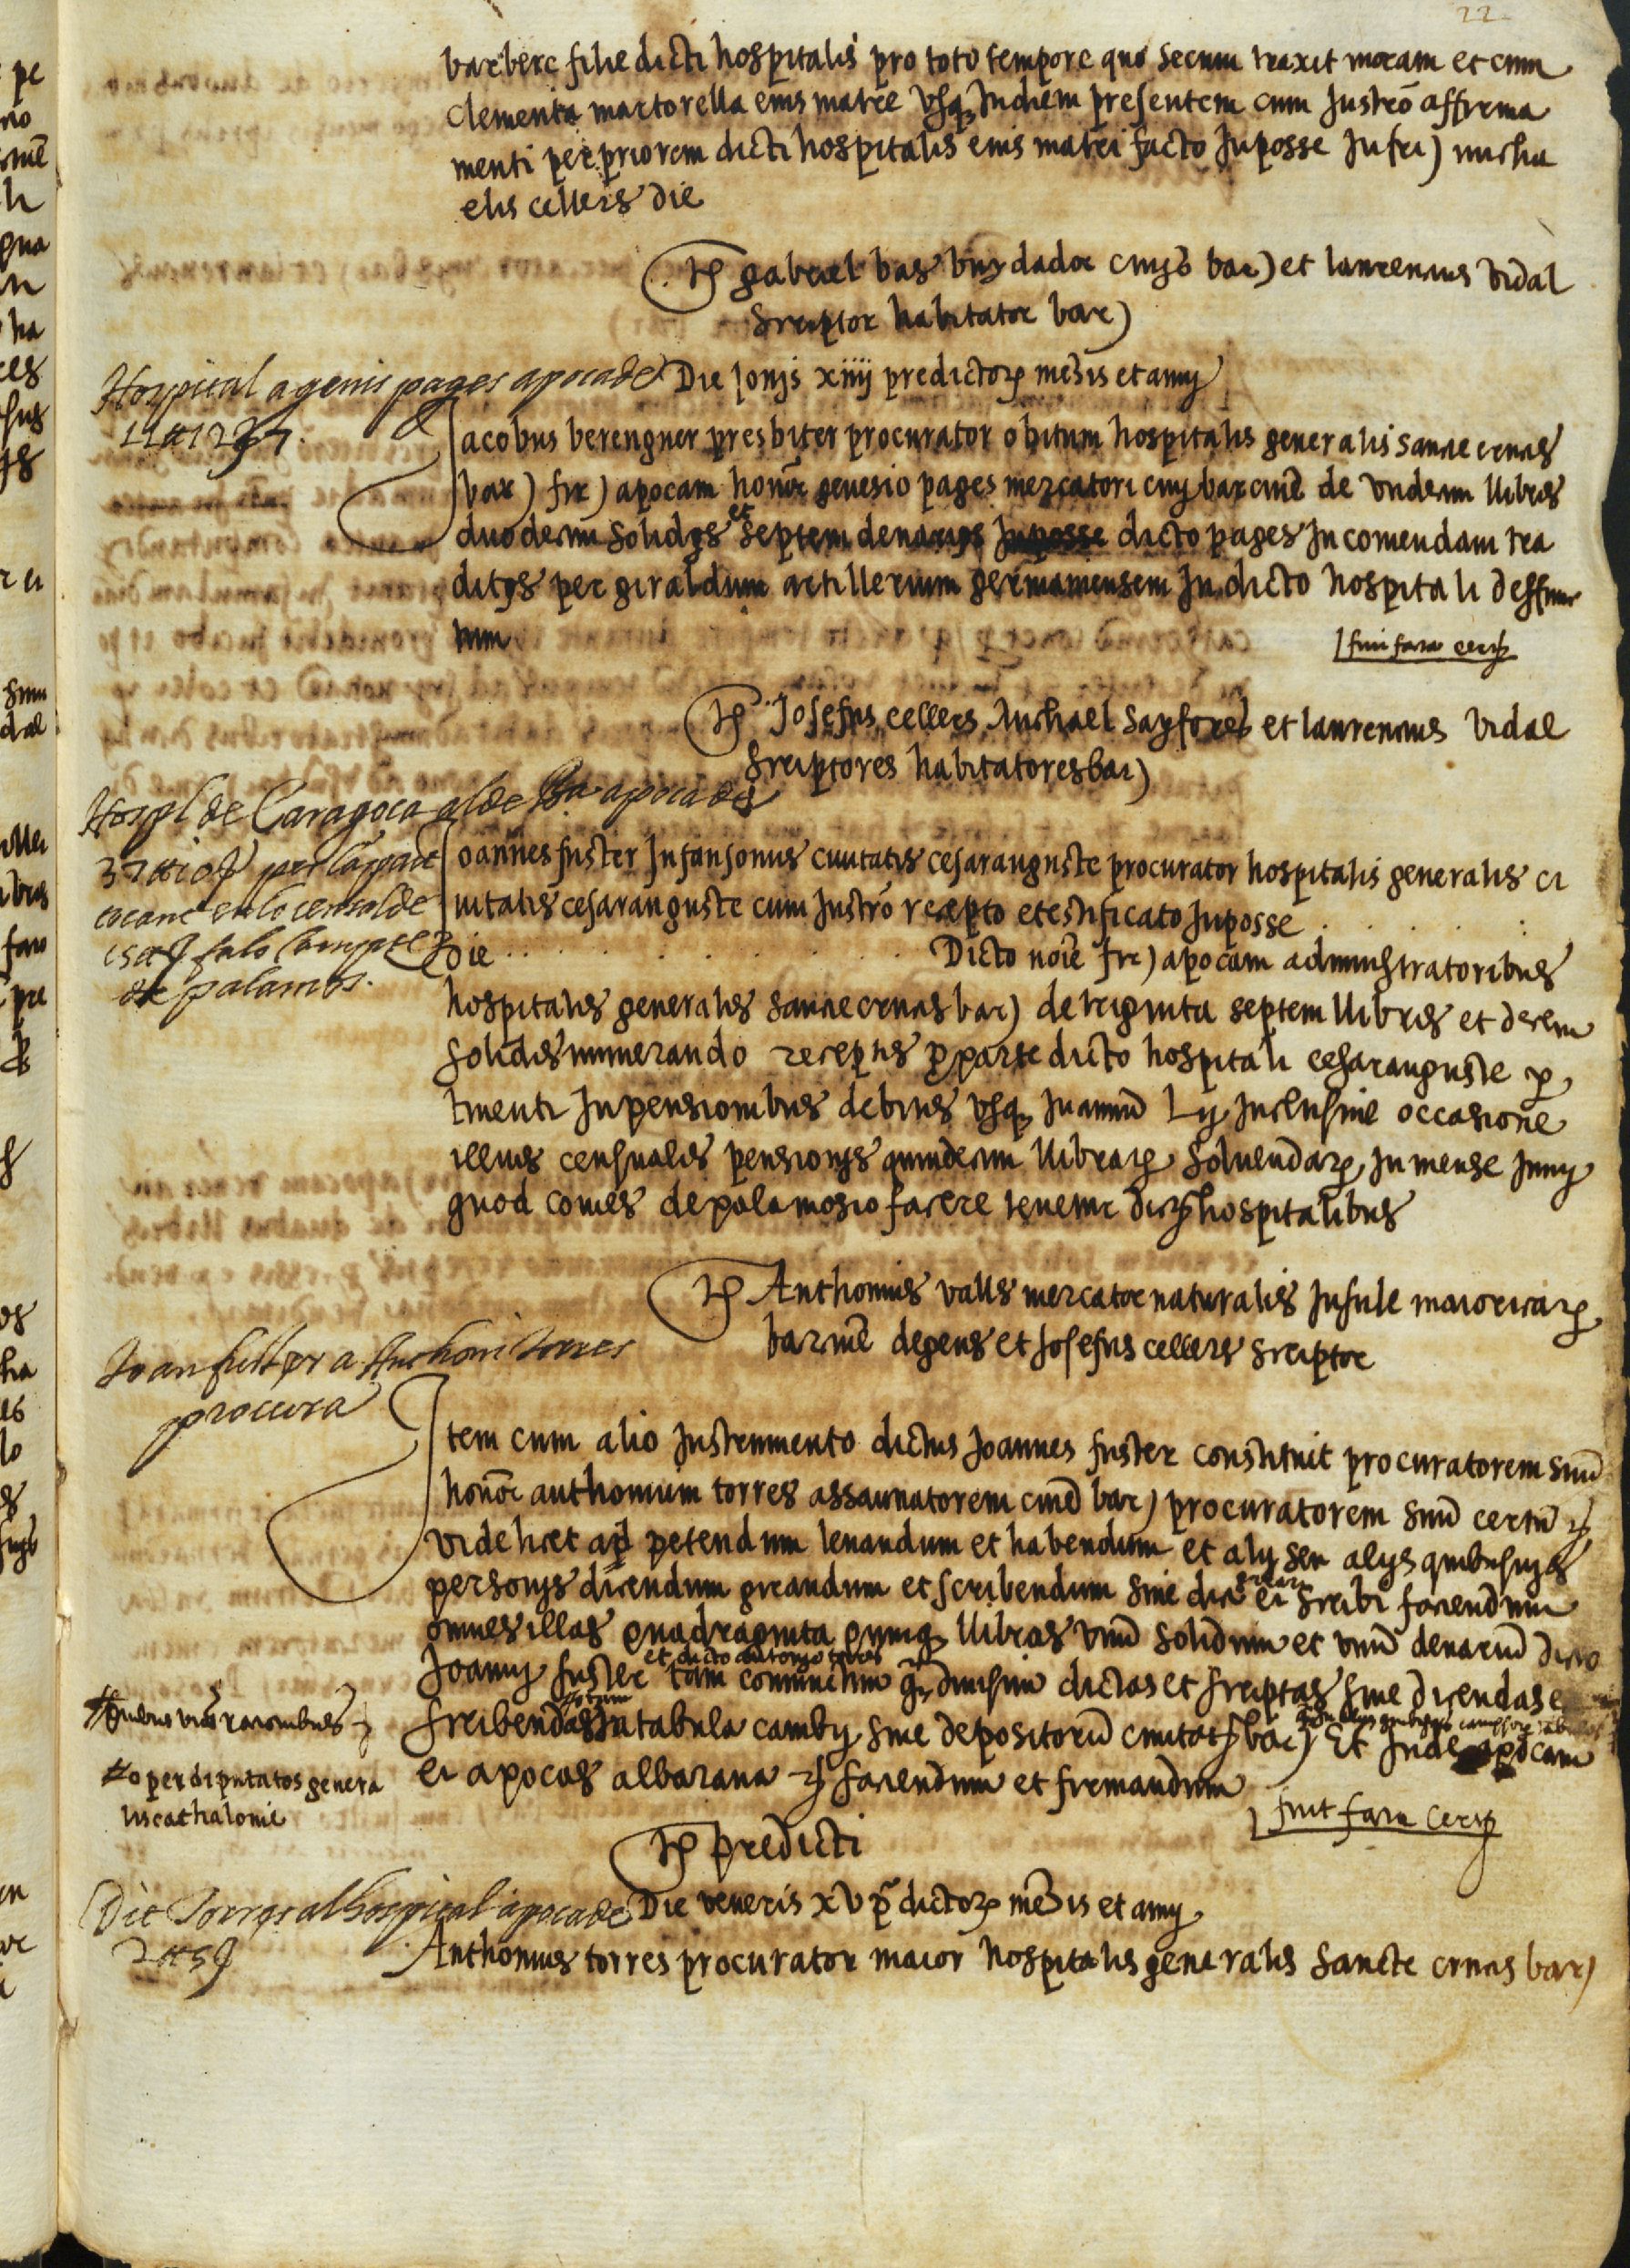 22
barbere filie dicti hospitalis pro toto tempore quo secum traxit moram et cum
clementa martorella eius matre usq Indiem presentem cum Justrō affirma
menti per priorem dicti hospitalis eius matri facto Inposse Jufri) micha
elis cellers die
Ts gabriel bas bruydador civis bar) et laurencius vidal
scriptor habitator bar)
Hospital a genis pages apoca de
11 ₶ 12 ȷ 7.
Die Jovis xiiij predictorȝ mesis et anny
Jacobus berenguer presbiter procurator obituum hospitalis generalis sancte crucis
bar) fir) apocam honōr genesio pages mercatori civy barcinē de undecim llibris
duodecim solidys et septem denarys dicto pages Incomendam tra
ditys per giraldum artillerium germaniensem In dicto hospitali deffunc
tum
Ts Josefus cellers Michael Sayfores et laurencius vidal
scriptores habitatores bar)
Hospl de Caragoça al de Ba apoca de
37 ₶ 10 ȷ per la part
tocant en lo censal de
15 ₶ ȷ fa lo Compte
de palamos.
Joannes fuster Infansonus civitatis cesarauguste procurator hospitalis generalis ci
vitatis cesarauguste cum Justrō recepto et estificato Inposse
die Dicto noīe fir) apocam administratoribus
hospitalis generalis sancte crucis bar) de triginta septem llibris et decem
solidis numerando receptis p parte dicto hospitali cesarauguste p
tinenti In pensionibus debitis usq In annū Lij Inclusive occasione
illius censualis pensionys quindecim llibrarȝ solvendarȝ In mense Juny
quod comes de palamosio facere tenetur dictys hospitalibus
Ts Anthonius valls mercator naturalis Insule maioricarȝ
barcinē degens et Josefus cellers scriptor
Joan fuster a Anthoni torres
procura
Item cum alio Justrumento dictus Joannes fuster constituit procuratorem suū
honōr anthonium torres assaunatorem civē bar) procuratorem suū certū
videlicet ad petendum levandum et habendum et aly seu alys quibusvys
personys dicendum girandum et scribendum sive dici girari et scribi faciendum
omnes illas quadraginta quinq llibras unū solidum et unū denariū dicto
Joanny fuster et dicto antonyo torres tam coniunctim q̄ divisim dictas et scriptas sive dicendas et
scribendas In tabula camby sive depositorū civitatys bar) Et Inde apocam
#quibusvis racionibus
#o per diputatos genera
lis cathalonie
et apocas albarana faciendum et firmandum
fuit facta
Ts predicti
Die Torres al hospital apoca de
2 ₶ 5 ȷ
Die veneris xv p̄dictorȝ mēsis et anny
Anthonius torres procurator maior hospitalis generalis sancte crucis bar)